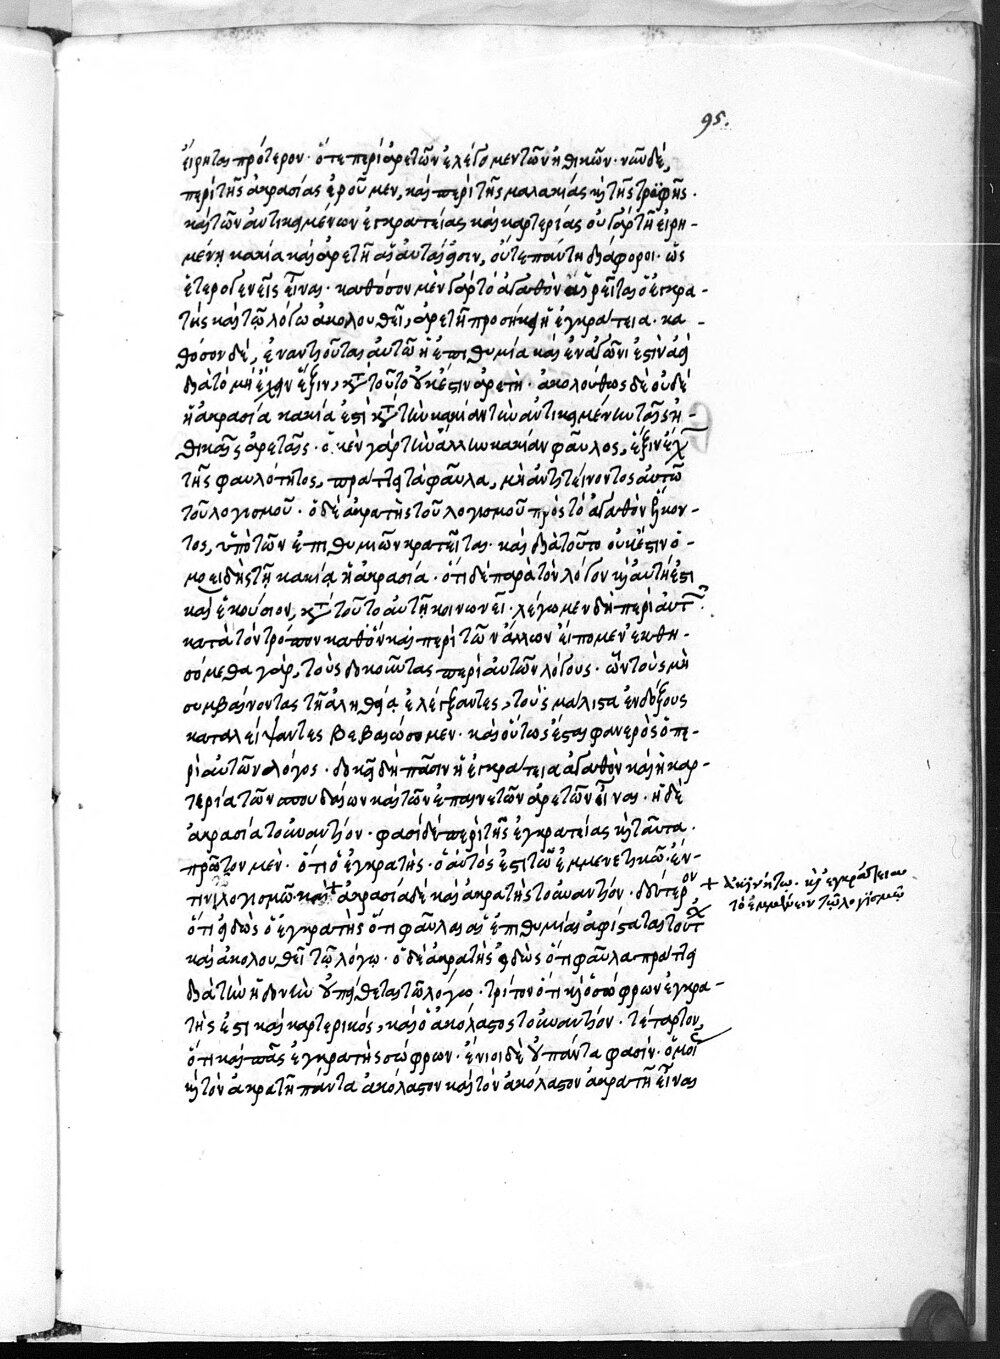 95.
εἴρηται πρότερον· ὅτε περὶ ἀρετῶν ἐλέγομεν τῶν ἠθικῶν· νῦν δὲ,
περὶ τῆς ἀκρασίας ἐροῦμεν, καὶ περὶ τῆς μαλακίας κ τῆς τρυφῆς.
καὶ τῶν ἀντικειμένων ἐγκρατείας καὶ καρτερίας οὐ γὰρ τῇ εἰρη-
μένῃ κακία καὶ ἀρετῇ αἱ αὐταί εἰσιν, οὔτε πάντη διάφοροι· ὡς
ἑτερογενεῖς εἶναι· καθόσον μὲν γὰρ τὸ ἀγαθὸν αἱρεῖται ὁ ἐγκρα-
τὴς καὶ τῷ λόγω ἀκολουθεῖ, ἀρετῇ προσήκει ἡ ἐγκράτεια· κα-
θόσον δὲ, ἐναντιοῦται αὐτῶ ἡ ἐπιθυμία καὶ ἐν ἀγῶνι ἐστὶν ἀεὶ
διὰ τὸ μὴ ἔχειν ἕξιν, κτ τοῦτο οὐκ ἔστιν ἀρετὴ· ἀκολούθως δὲ οὐδὲ
ἡ ἀκρασία κακία ἐστὶ κτ τὴν κακίαν τὴν ἀντικειμένην ταῖς ἠ-
θικαῖς ἀρεταῖς· ὁ κὲν γὰρ τὴν ἄλλην κακίαν φαῦλος, ἕξιν ἔχ
τῆς φαυλότητος, πράττει τὰ φαῦλα, μὴ ἀντιτείνοντος αὐτῶ
τοῦ λογισμοῦ· ὁ δὲ ἀκρατὴς τοῦ λογισμοῦ πρὸς τὸ ἀγαθὸν ἕλκον-
τος, ὑπὸ τῶν ἐπιθυμιῶν κρατεῖται· καὶ διὰ τοῦτο οὐκ ἔστιν ὁ-
μοειδὴς τῇ κακίᾳ ἡ ἀκρασία· ὅτι δὲ παρὰ τὸν λόγον κ αὐτή ἐστι
καὶ ἑκούσιον, κτ τοῦτο αὐτῇ κοινωνεῖ· λέγωμεν δὴ περὶ αὐτ
κατὰ τὸν τρόπον καθ' ὃν καὶ περὶ τῶν ἄλλων εἴπομεν ἐκθη-
σόμεθα γὰρ, τοὺς δοκοῦντας περὶ αὐτῶν λόγους· ὧν τοὺς μὴ
συμβαίνοντας τῇ ἀληθείᾳ ἐλέγξαντες, τοὺς μάλιστα ἐνδόξους
καταλείψαντες βεβαιώσομεν· καὶ οὕτως ἔσται φανερὸς ὁ πε-
ρὶ αὐτῶν λόγος· δοκεῖ δὴ πᾶσιν ἡ ἐγκράτεια ἀγαθὸν καὶ ἡ καρ-
τερία τῶν σπουδαίων καὶ τῶν ἐπαινετῶν ἀρετῶν εἶναι· ἡ δὲ
ἀκρασία τοὐναντίον· φασὶ δὲ περὶ τῆς ἐγκρατείας κ ταῦτα·
πρῶτον μὲν· ὅτι ὁ ἐγκρατὴς· ὁ αὐτός ἐστι τῶ ἐμμενετικῶ ἔν-
τινι λογισμῶ καὶ + ἀκρασία δὲ καὶ ἀκρατὴς τοὐναντίον· δεύτερον
+ ἀκινήτω· κ ἐγκράτειαν
τὸ ἐμμένειν τῷ λογισμῶ
ὅτι εἰδὼς ὁ ἐγκρατὴς ὅτι φαῦλαι αἱ ἐπιθυμίαι ἀφίσταται τούτ
καὶ ἀκολουθεῖ τῷ λόγῳ· ὁ δὲ ἀκρατὴς εἰδὼς ὅτι φαῦλα πράττει
διὰ τὴν ἡδονὴν οὐ πείθεται τῷ λόγω· τρίτον ὅτι κ ὁ σώφρων ἐγκρα-
τής ἐστι καὶ καρτερικός, καὶ ὁ ἀκόλαστος τοὐναντίον· τέταρτον,
ὅτι καὶ πᾶς ἐγκρατὴς σώφρων· ἔνιοι δὲ οὐ πάντα φασίν· ὁμοί
κ τὸν ἀκρατῆ πάντα ἀκόλαστον καὶ τὸν ἀκόλαστον ἀκρατῆ εἶναι